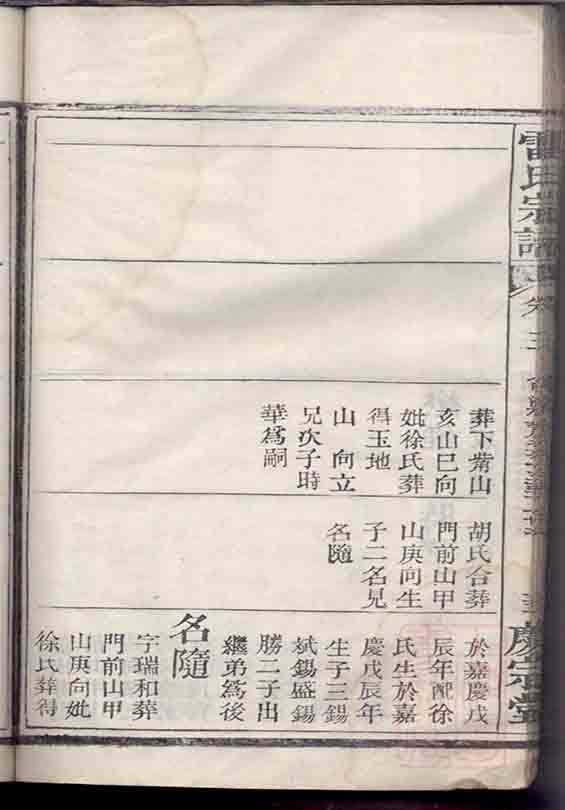 雷氏宗譜
卷三
慶宗堂
葬下觜山
亥山巳向
妣徐氏葬
得玉地
山　向立
兄次子時
華為嗣
胡氏合葬
門前山甲
山庚向生
子二名兄
名隨
於嘉慶戊
辰年配徐
氏生於嘉
慶戊辰年
生子三錫
斌錫盛錫
勝二子出
繼弟為後
名隨
字瑞和葬
門前山甲
山庚向妣
徐氏葬得